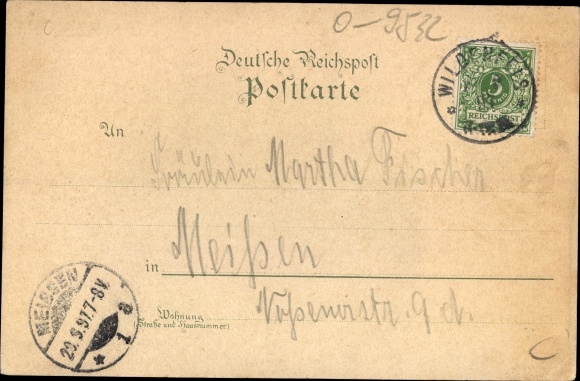 0-9532
Deutsche Reichspost
Postkarte
WILDENFELS
5
REICHSPOST
An
Fräulein Martha Fischer
in Meißen
Wohnung
(Straße und Hausnummer)
9 d.
MEISSEN
29.5.97.7-8V.
* 1